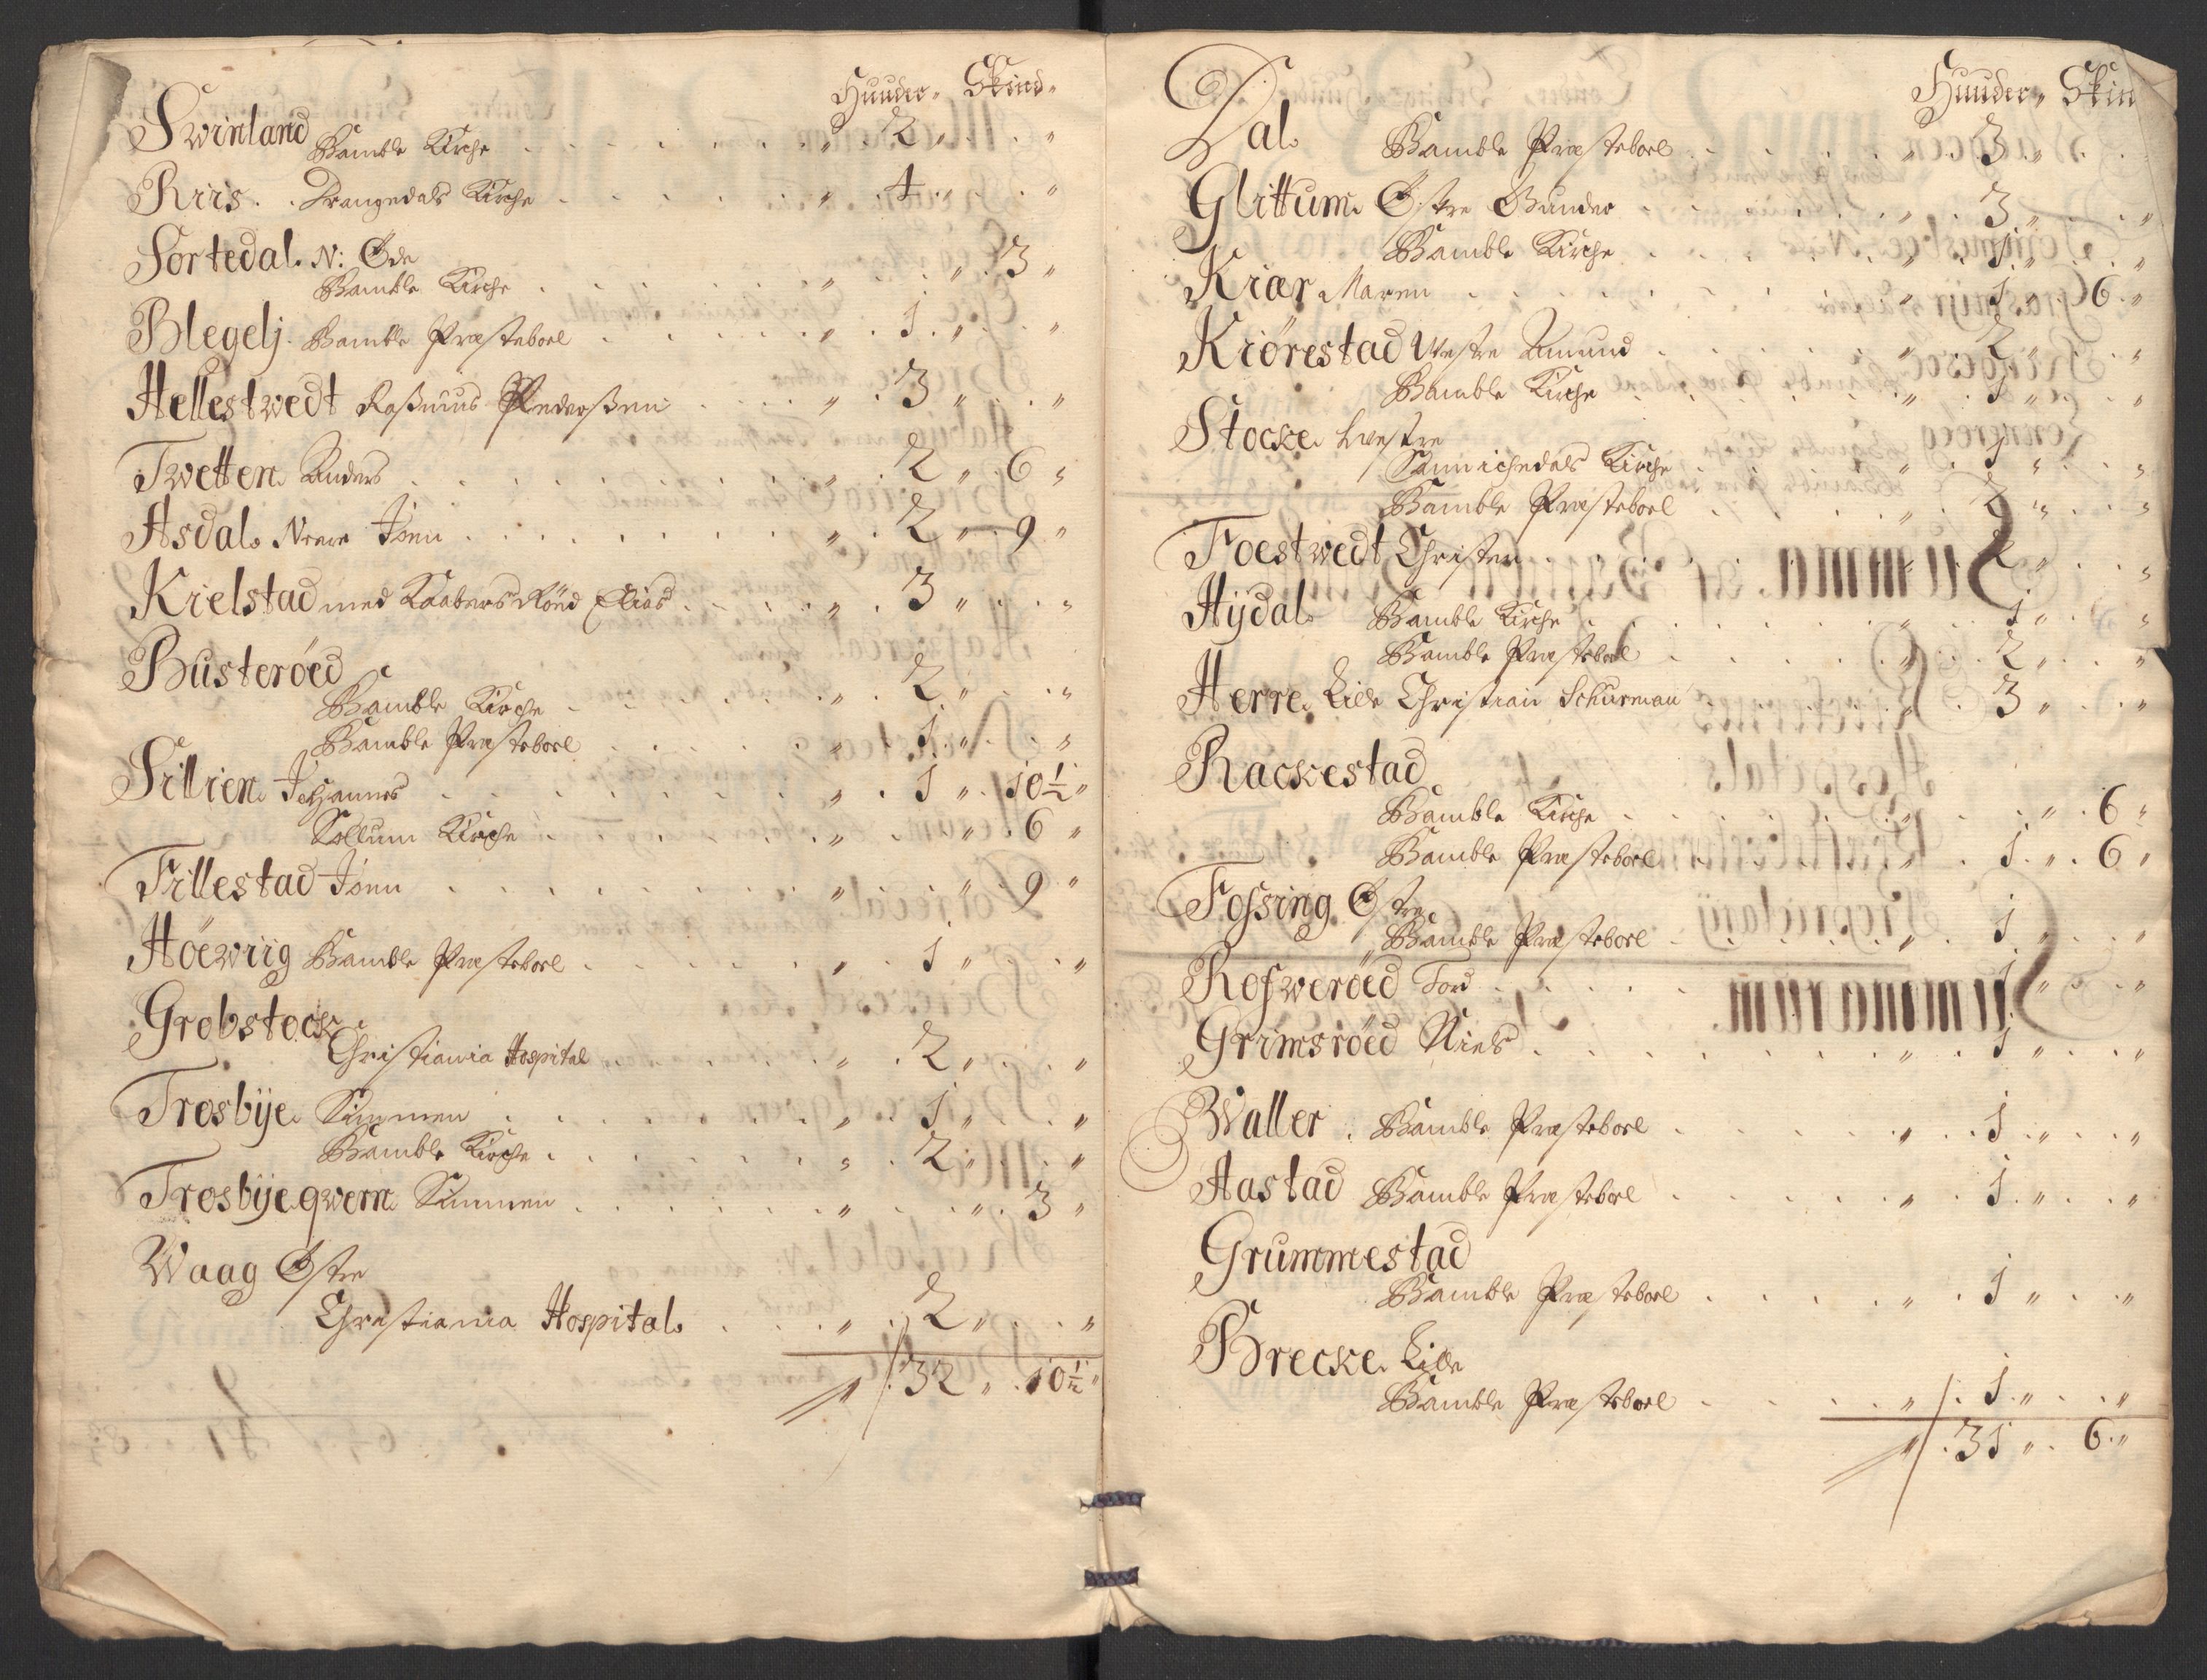 Huuder„ Skind„
Swinland
Bamble Kirche . . . . . . „ . 2 „ . . „
Riis . . Drangedals Kirche . . . . . . „ . 4 . „ . . „
Sortedal N: Øde
Bamble Kirche . . . . . . „ . . „ . 3 „
Blegelj . Bamble Præsteboel . . . . . „ . 1 . „ . . „
Hellestwedt Raßmus Pederßen . . . . „ . 3 „ . . „
Twetten Anders . . . . . . . . „ . 2 „ . 6 „
Asdal Nerre Jönn . . . . . . . „ . 2 „ . 9 „
Kielstad med Kaabers Röed Elias . . . . „ . 3 „ . . „
Busteröed
Bamble Kirche . . . . . „ . 2 „ . . „
Bamble Præsteboel . . . . . „ . 1 . „ . . „
Sillien Johannes . . . . . . . „ . 1 „ . 10½ „
Sollum Kirche . . . . . . „ . . „ . 6 „
Fillestad Jönn . . . . . . . . „ . . „ . 9 „
Höewiig Bamble Præsteboel . . . . . „ . 1 „ . . „
Grobstock
Christiania Hospital . . . . . „ . 2 „ . . „
Trosbÿe Simmen . . . . . . . „ . 1 „ . . „
Bamble Kirche . . . . . . „ . 2 „ . . „
Trosbÿeqwern Simmen . . . . . . „ . . „ . 3 „
Waag Østre
Christiania Hospital . . . „ . 2 „ . . „
„ . 32 „ . 10½ „
Huuder„ Skin
Dal
Bamble Præsteboel . . . . . „ . 3 . „ . .
Glittum Østre Gunder . . . . . . „ . 3 „ . . „
Bamble Kirche . . . . . . „ . 1 „ . . „
Kiær Maren . . . . . . . . „ . 1 „ . 6 „
Kiörestad Westre Amund . . . . . „ . 2 „ . . „
Bamble Kirche . . . . . . „ . 1 „ . . „
Stocke Westre
Sannichedals Kirche . . . . . „ . 1 „ . . „
Bamble Præsteboel . . . . . „ . 2 „ . . „
Foestwedt Christen . . . . . . „ . 2 „ . . „
Hÿdal Bamble Kirche . . . . . . „ . 1 „ . . „
Bamble Præsteboel . . . . . „ . 2 „ . . „
Herre Lille Christian Schurman . . . . „ . 3 „ . . „
Rackestad
Bamble Kirche . . . . . . „ . . „ . 6 „
Bamble Præsteboel . . . . . „ . 1 . „ . 6 „
Fossing Østre
Bamble Præsteboel . . . . . „ . 1 „ . . „
Rosweröed Tord . . . . . . . „ . 1 „ . . „
Grimsröed Niels . . . . . . . „ . 1 „ . . „
Waller . Bamble Præsteboel . . . . . „ . 1 . „ . . „
Aastad Bamble Præsteboel . . . . . „ . 1 . „ . . „
Grummestad
Bamble Præsteboel . . . . . „ . 1 „ . . „
Brecke Lille
Bamble Præsteboel . . . . . „ . 1 . „ . . „
„ . 31 „ . 6 . „